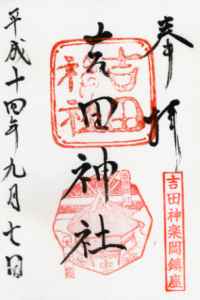 奉拝
吉田神楽岡鎮座
吉田神社
吉田神社
平成十四年九月七日